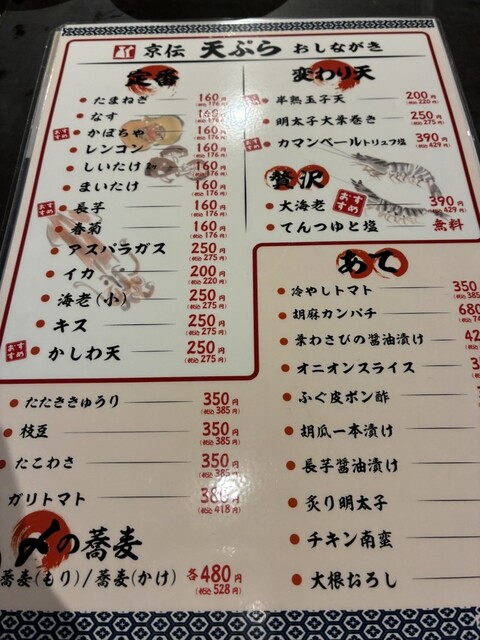 京伝 天ぷら おしながき
定番
たまねぎ 160円 (税込 176円)
なす 160円 (税込 176円)
おすすめ かぼちゃ 160円 (税込 176円)
レンコン 160円 (税込 176円)
しいたけ 160円 (税込 176円)
まいたけ 160円 (税込 176円)
おすすめ 長芋 160円 (税込 176円)
春菊 160円 (税込 176円)
アスパラガス 250円 (税込 275円)
イカ 200円 (税込 220円)
海老(小) 250円 (税込 275円)
キス 250円 (税込 275円)
おすすめ かしわ天 250円 (税込 275円)
変わり天
おすすめ 半熟玉子天 200円 (税込 220円)
明太子大葉巻き 250円 (税込 275円)
おすすめ カマンベールトリュフ塩 390円 (税込 429円)
贅沢
大海老 おすすめ 390円 (税込 429円)
てんつゆと塩 無料
あて
冷やしトマト 350 (税込 385
胡麻カンパチ 680
葉わさびの醤油漬け
オニオンスライス
ふぐ皮ポン酢
胡瓜一本漬け
長芋醤油漬け
炙り明太子
チキン南蛮
大根おろし
たたききゅうり 350円 (税込 385円)
枝豆 350円 (税込 385円)
たこわさ 350円 (税込 385円)
ガリトマト 380円 (税込 418円)
〆の蕎麦
蕎麦(もり)/蕎麦(かけ) 各480円 (税込 528円)